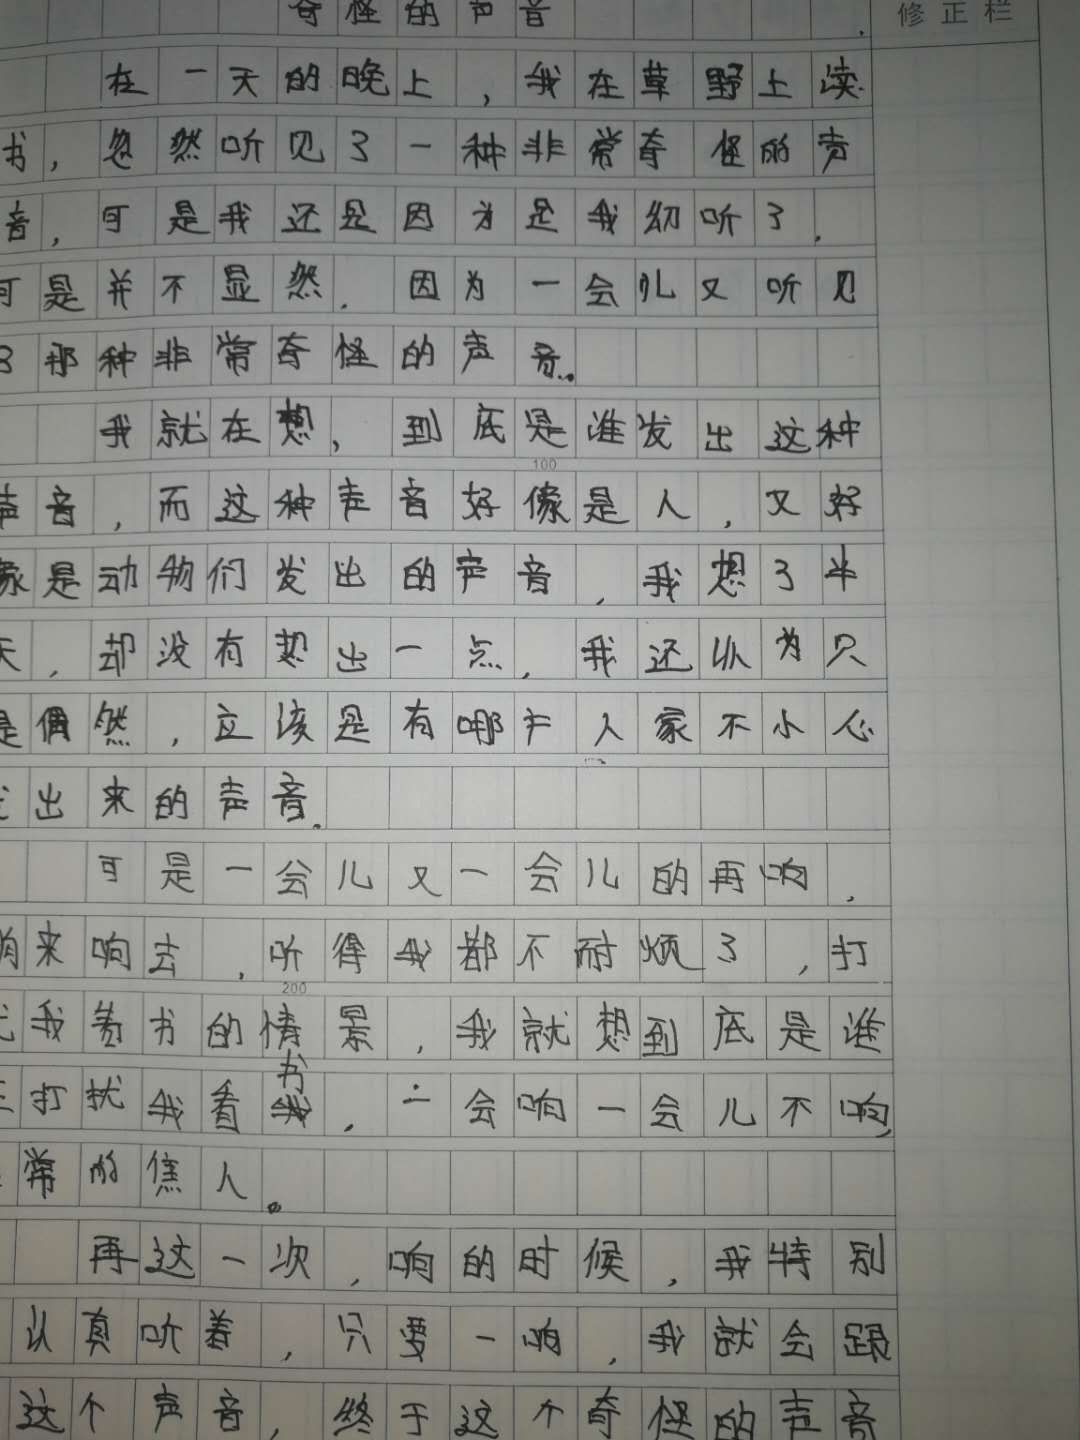 奇怪的声音
修正栏
在一天的晚上，我在草野上读
书，忽然听见了一种非常奇怪的声
音，可是我还是因为是我幻听了，
可是并不显然，因为一会儿又听见
了那种非常奇怪的声音。
我就在想，到底是谁发出这种
100
声音，而这种声音好像是人，又好
象是动物们发出的声音，我想了半
天，却没有想出一点，我还认为只
是偶然，应该是有哪户人家不小心
出来的声音。
可是一会儿又一会儿的再响，
响来响去，听得我都不耐烦了，打
200
扰我看书的情景，我就想到底是谁
打扰我看书，一会响一会儿不响，
常的焦人。
再这一次，响的时候，我特别
认真听着，只要一响，我就会跟
这个声音，终于这个奇怪的声音